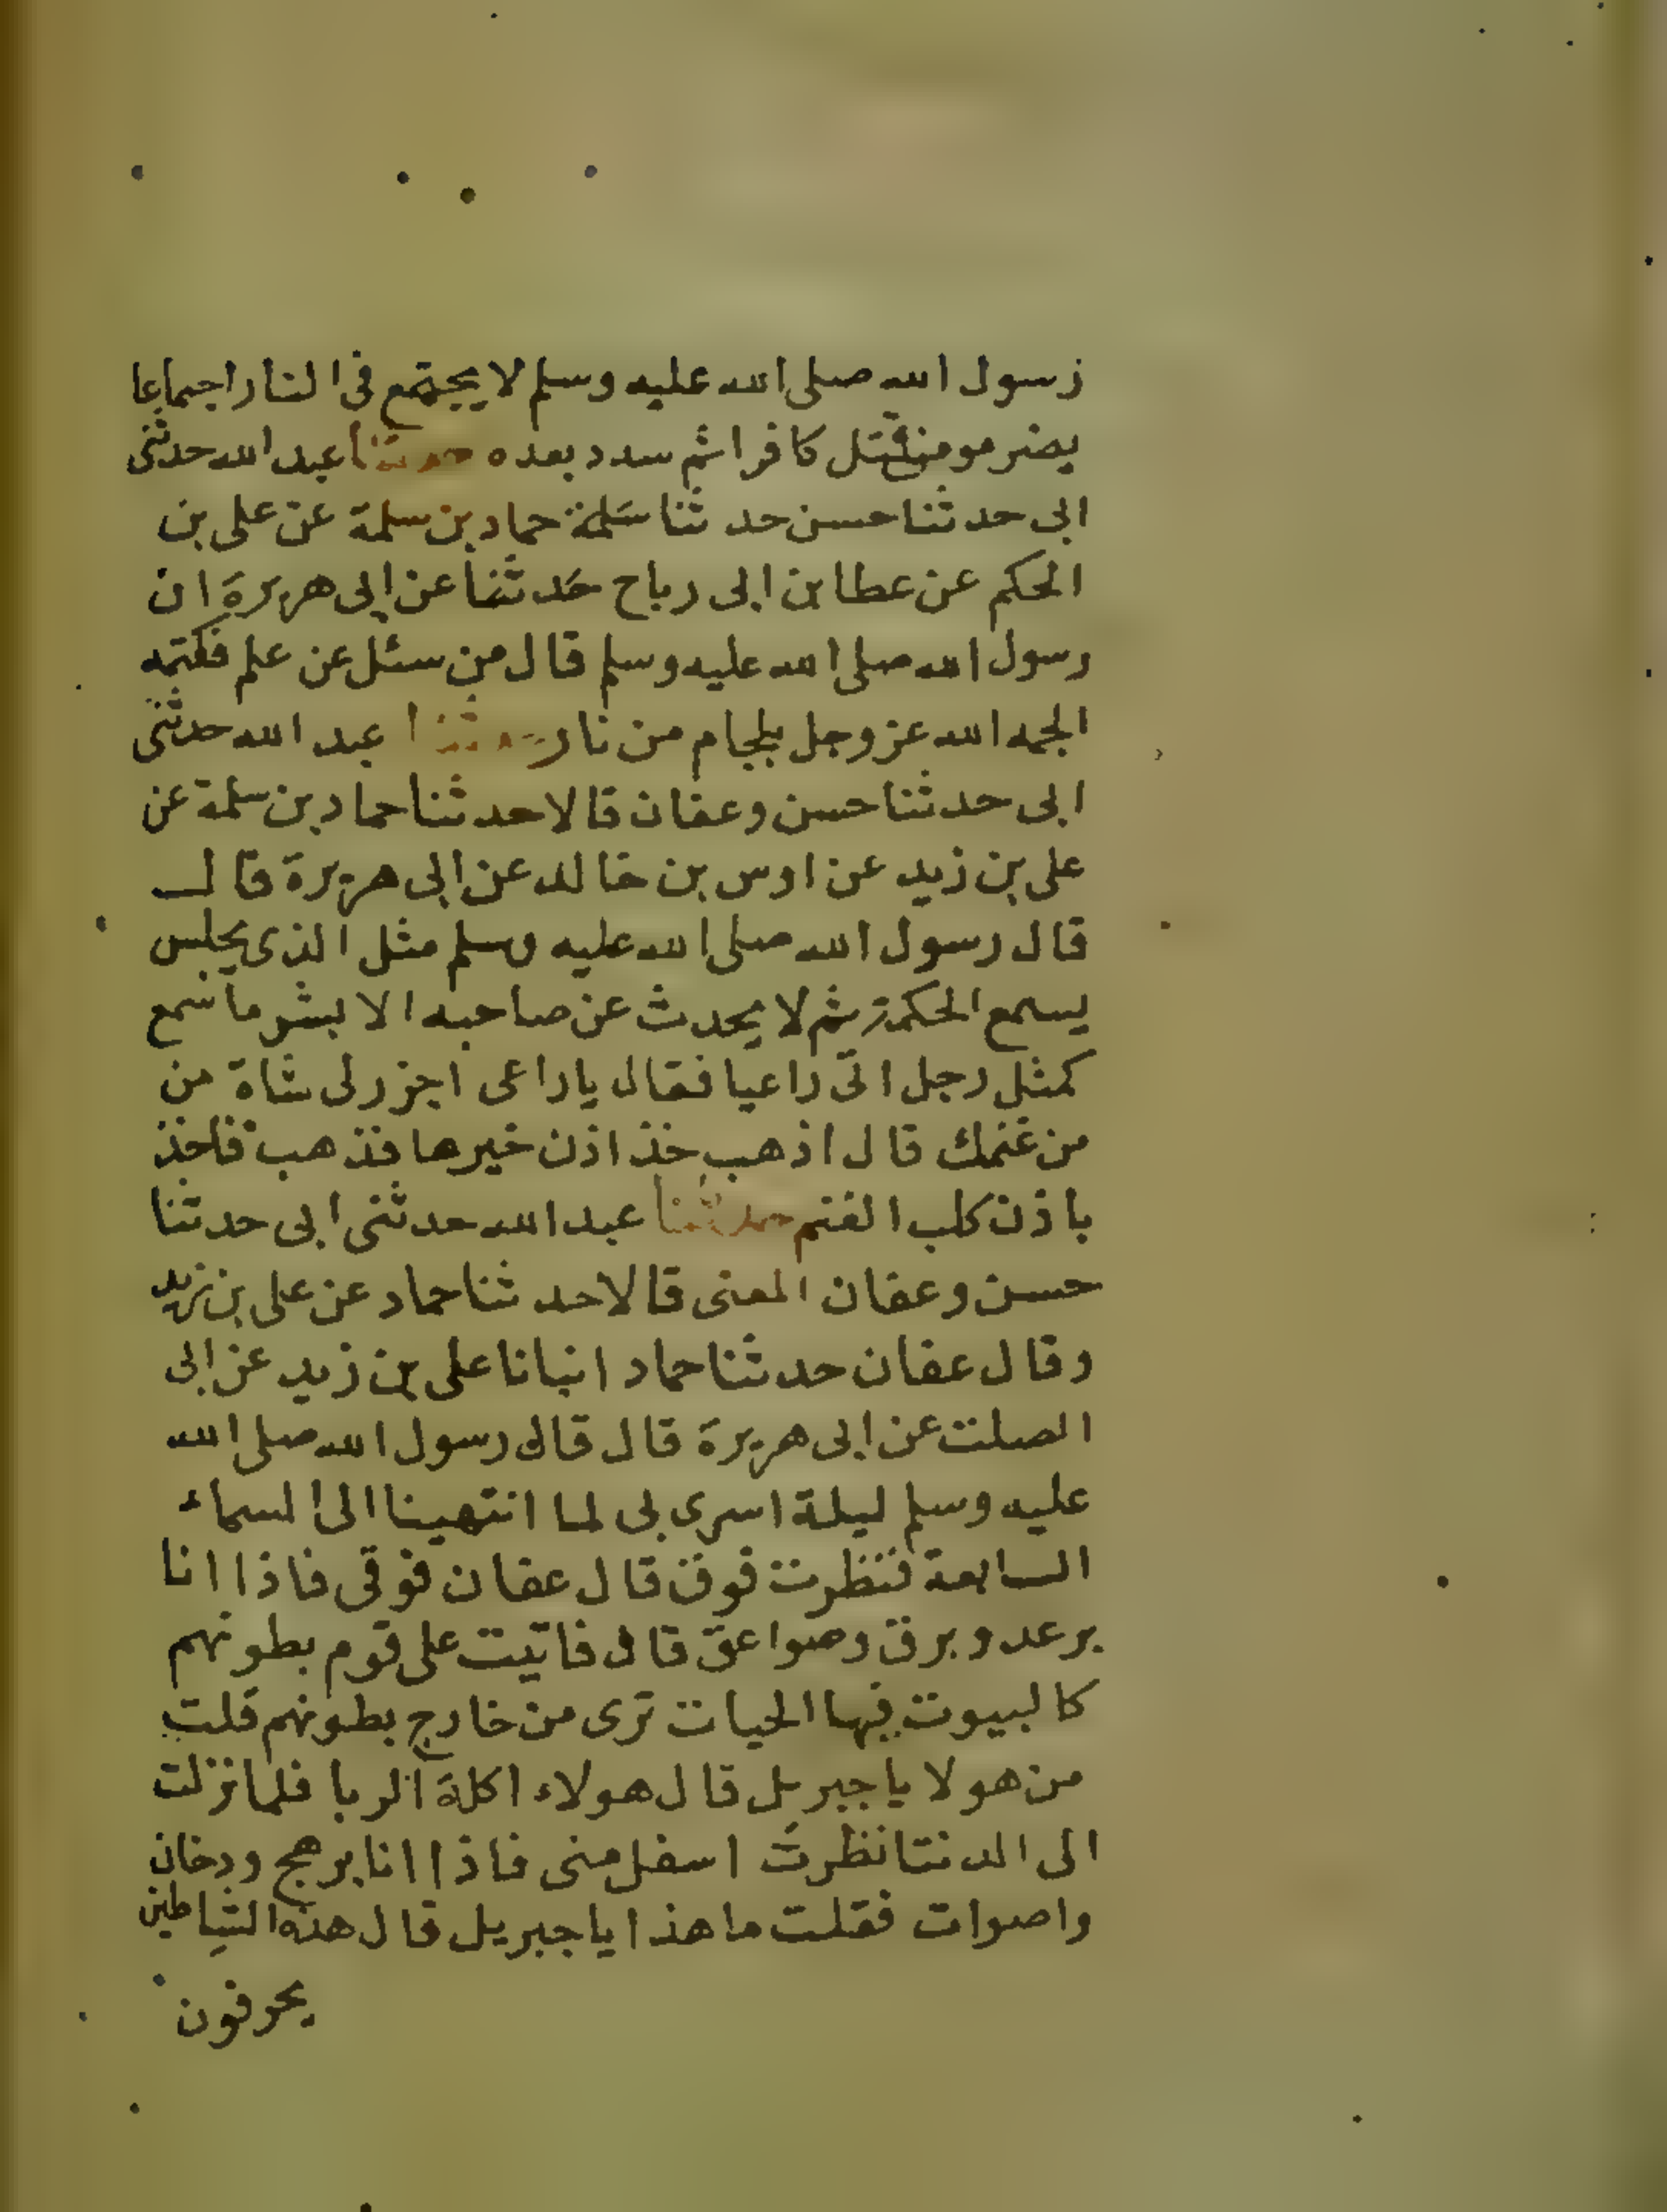 رسول الله صلى الله عليه وسلم لا يجتمع في النار اجماعا
يضر مومن قتل كافرا ثم سدد بعده حدثنا عبد الله حدثنى
ابى حدثنا حسن حدثنا سلمة حماد بن سلمة عن على بن
الحكم عن عطا بن ابى رباح حدثنا عن ابى هريرة ان
رسول الله صلى الله عليه وسلم قال من سئل عن علم فكتمه
الجمه الله عز وجل بلجام من نار حدثنا عبد الله حدثنى
ابى حدثنا حسن وعفان قالا حدثنا حماد بن سلمة عن
على بن زيد عن اوس بن خالد عن ابى هريرة قال
قال رسول الله صلى الله عليه وسلم مثل الذى يجلس
يسمع الحكمة ثم لا يحدث عن صاحبه الا بشر ما سمع
كمثل رجل اتى راعيا فقال يا راعى اجزر لى شاة من
من غنمك قال اذهب خذ اذن خيرها فذهب فاخذ
باذن كلب الغنم حدثنا عبد الله حدثنى ابى حدثنا
حسن وعفان المعنى قالا حدثنا حماد عن على بن زيد
وقال عفان حدثنا حماد انبانا على بن زيد عن ابى
الصلت عن ابى هريرة قال قال رسول الله صلى الله
عليه وسلم ليلة اسرى بى لما انتهينا الى السماء
السابعة فنظرت فوق قال عفان فوقى فاذا انا
برعد وبرق وصواعق قال فاتيت على قوم بطونهم
كالبيوت فيها الحيات ترى من خارج بطونهم قلت
من هولا يا جبريل قال هولاء اكلة الربا فلما نزلت
الى الدنيا نظرت اسفل منى فاذا انا برهج ودخان
واصوات فقلت ما هذا يا جبريل قال هذه الشياطين
يحرفون